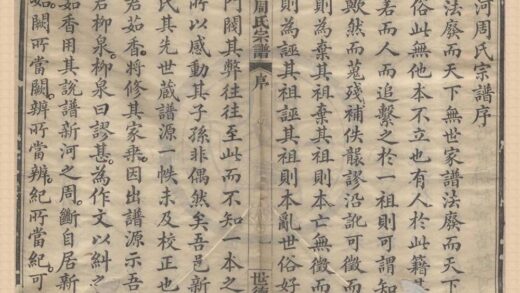 河周氏宗譜序
法廢而天下無世家譜法廢而天下
俗此無他本不立也有人於此籍其
若而人而追繫之於一祖則可謂知
歟然而蒐殘補佚襲謬沿訛可徵而
則為棄其祖棄其祖則本亡無徵而
則為誣其祖誣其祖則本亂世俗好
周氏宗譜
序
世德
門閥其弊往往至此而不知一本之
所以感動其子孫非偶然矣吾邑新
氏其先世蔵譜源一帙未及校正也
君茹香將修其家乘因出譜源示吾
君柳泉柳泉曰謬甚為作文以糾之
茹香用其說譜新河之周斷自居新
如闕所當闕辨所當辨紀所當紀可